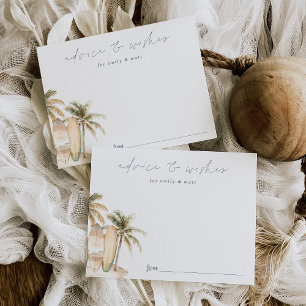 advice & wishes
for emily & matt
from
advice & wishes
for emily & matt
from